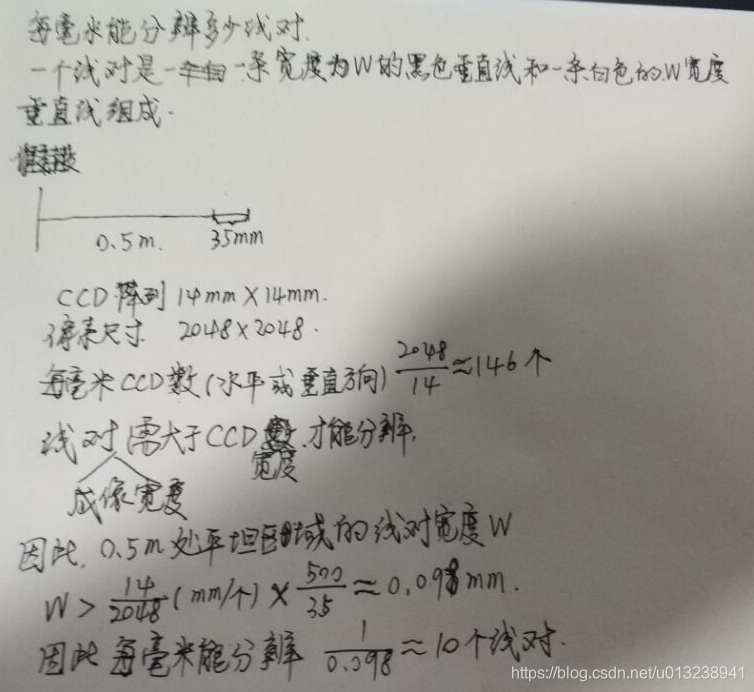 每毫米能分辨多少线对.
一个线对是一条宽度为W的黑色垂直线和一条白色的W宽度
垂直线组成.
0.5m. 35mm
CCD阵列 14mm×14mm.
像素尺寸 2048×2048.
每毫米CCD数(水平或垂直方向) 2048/14≈146个
线对需大于CCD宽度才能分辨,
成像宽度
因此,0.5m处平坦区域的线对宽度W
W > 14/2048 (mm/个) × 500/35 ≈ 0.098mm.
因此每毫米能分辨 1/0.098 ≈ 10个线对.
https://blog.csdn.net/u013238941